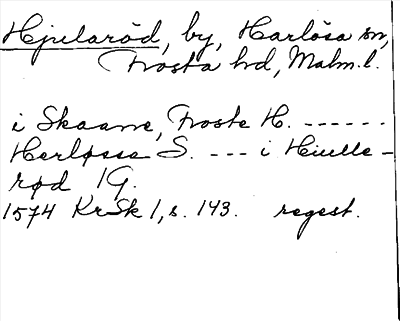 Hjularöd, by, Harlösa sn,
Frosta hd, Malm. l.
i Skaane, Froste H. ------
Herløsse S. --- i Hiulle-
rød 1 G.
1574 KrSk 1, s. 143. regest.